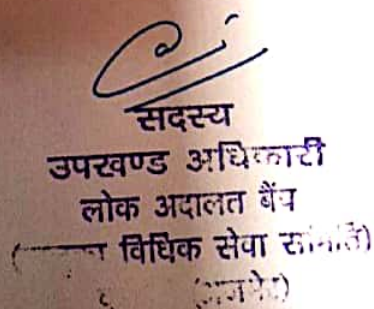 सदस्य
उपखण्ड अधिकारी
लोक अदालत बैंच
विधिक सेवा समिति)